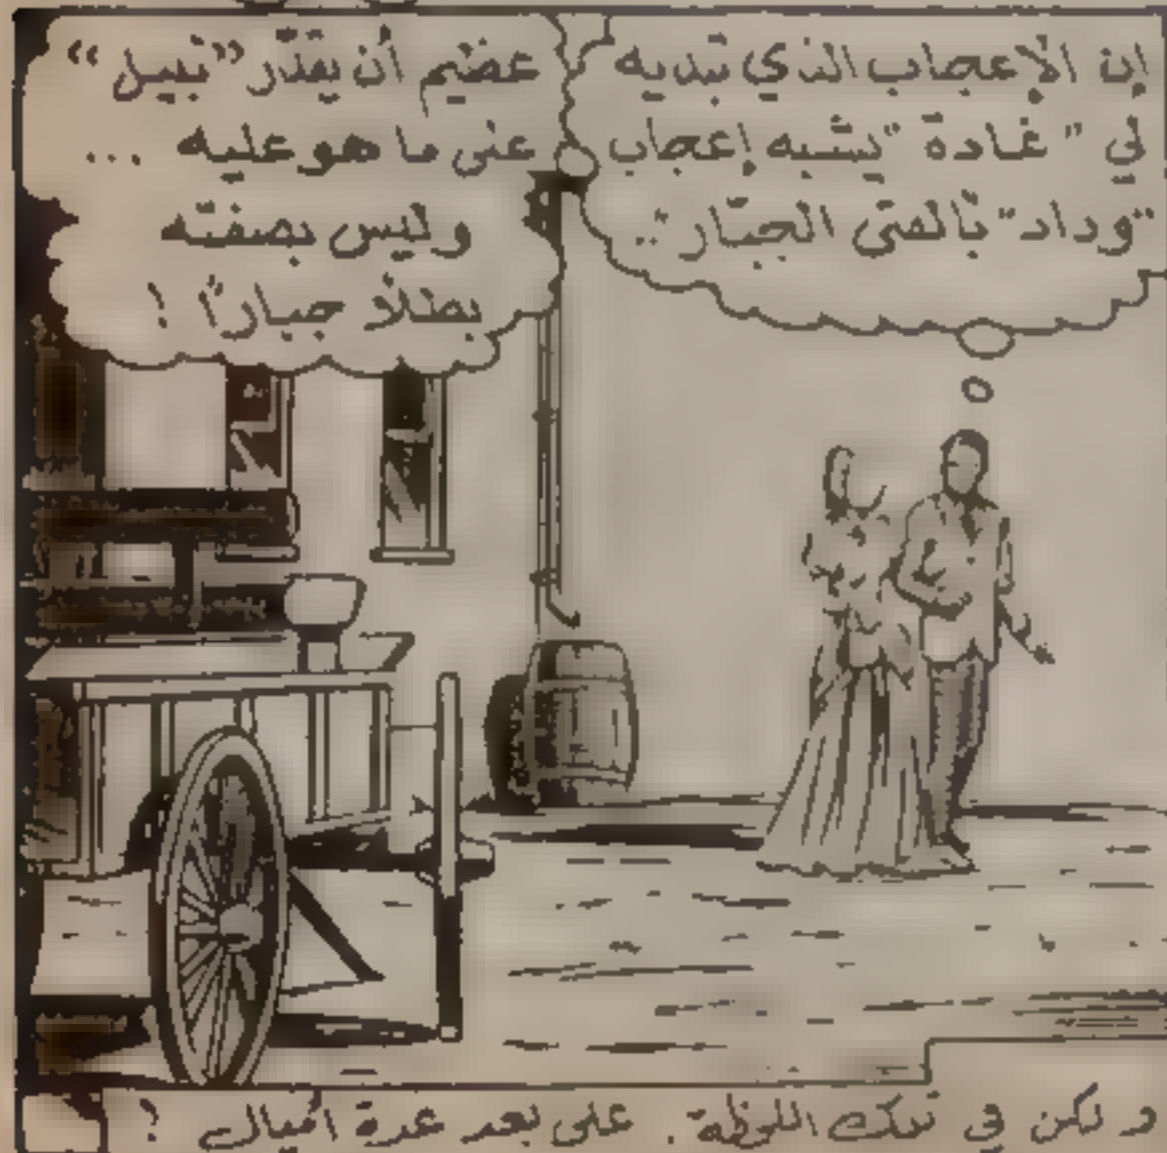 إن الإعجاب الذي تبديه
لي "غادة" يشبه إعجاب
"وداد" بالفتى الجبّار"..
عظيم أن يقدّر "نبيل"
على ما هو عليه ...
وليس بصفته
بطلاً جباراً !
و لكن في تلك اللحظة . على بعد عدة أميال ؟